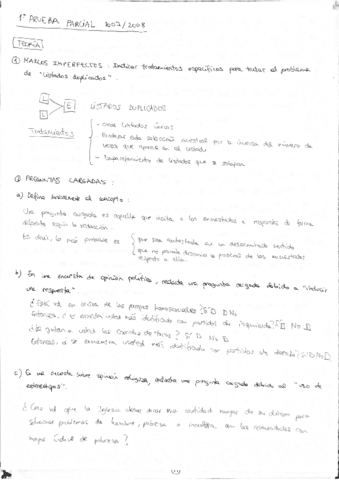 1ª PRUEBA PARCIAL 2007/2008
TEORÍA
① MARCOS IMPERFECTOS: Indicar tratamientos específicos para tratar el problema
de "Listados duplicados".
L
L
E
LISTADOS DUPLICADOS
Tratamientos
- crear listados únicos
- Ponderar cada selección muestral por la inversa del número de
veces que aparece en el listado
- de listados que se solapan
② PREGUNTAS CARGADAS:
a) Define brevemente el concepto:
Una pregunta cargada es aquella que incita a los encuestados a responder de forma
distinta según la redacción.
Es decir, lo más probable es
que sea contestada en un determinado sentido
que no permita descubrir la posición de los encuestados
respecto a ella.
b) En una encuesta de opinión política, redacta una pregunta cargada debido a "inducir
una respuesta".
¿Está ud. en contra de las parejas homosexuales? Sí No
Entonces, ¿se encuentra usted más identificado con partidos de izquierda? Sí No
¿Le gustan a usted las corridas de toros? Sí No
Entonces, ¿se encuentra usted más identificado con partidos de derecha? Sí No
c) En una encuesta sobre opinión religiosa, redacta una pregunta cargada debido al "uso de
estereotipos".
¿Cree ud. que la Iglesia debe dar más cantidad mayor de su dinero para
solucionar problemas de hambre, pobreza e incultura en las comunidades con
mayor índice de pobreza?